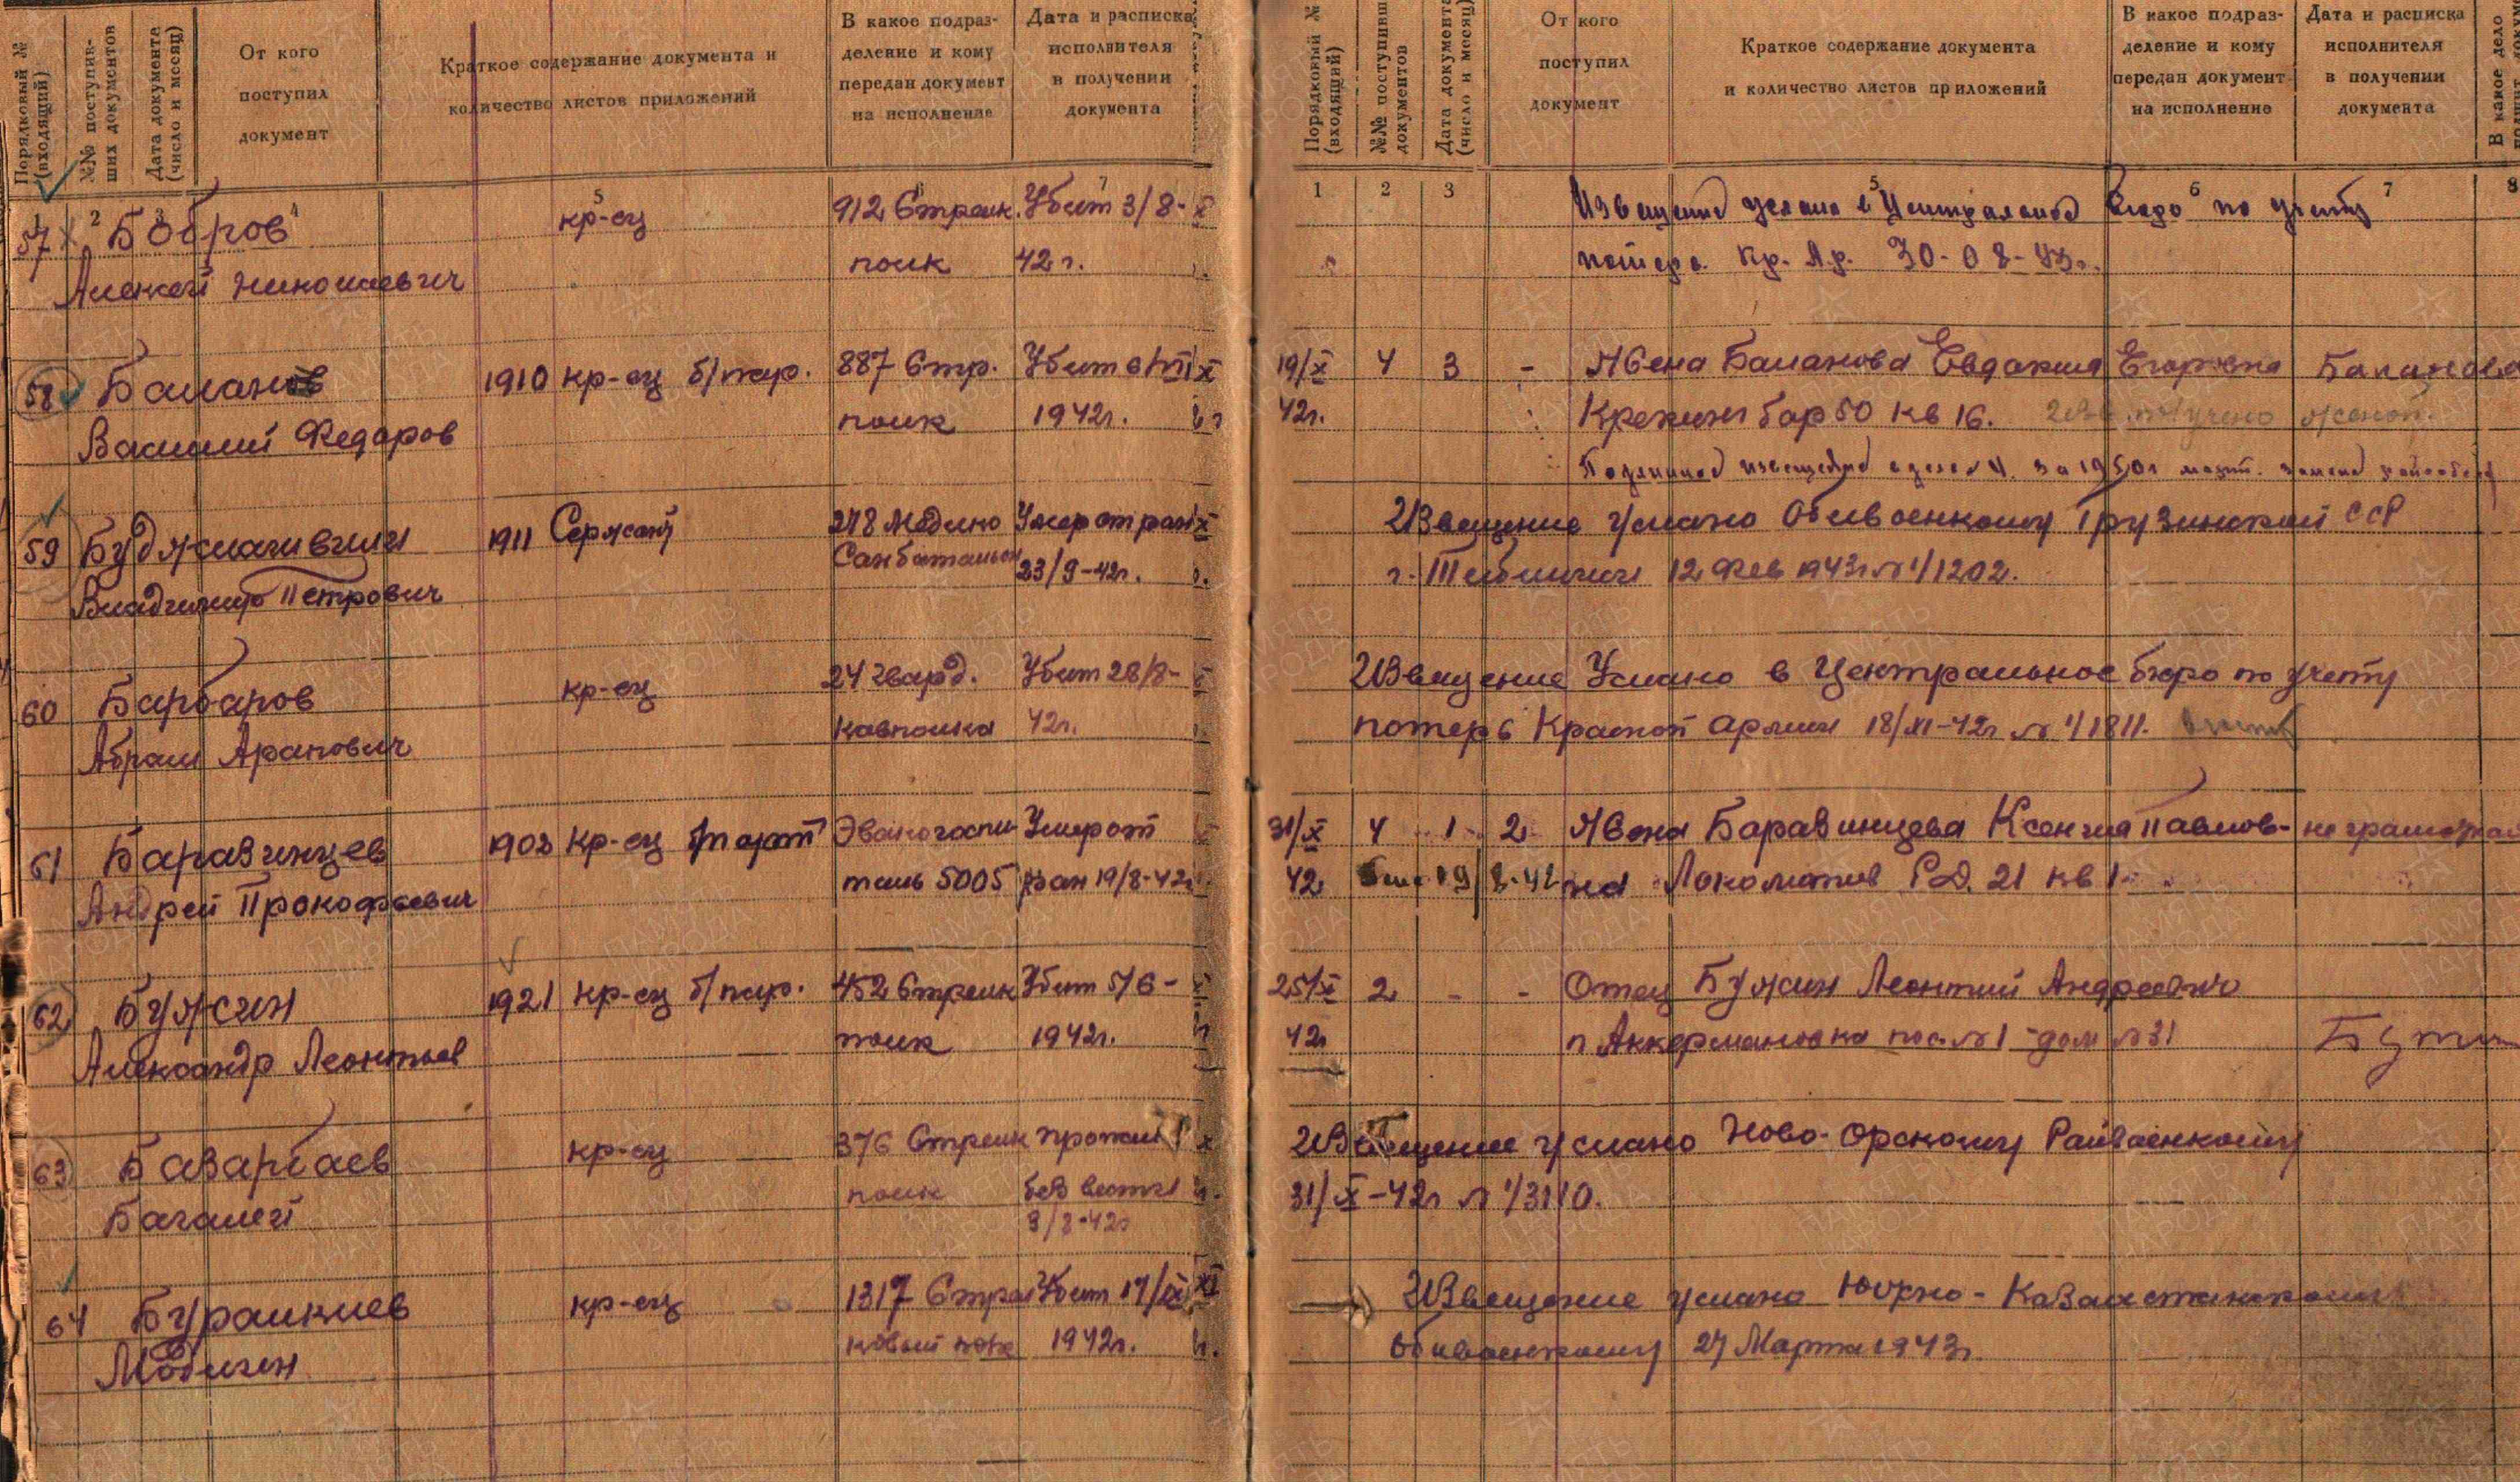 Порядковый № (входящий)
№№ поступивших документов
Дата документа (число и месяц)
От кого поступил документ
Краткое содержание документа и количество листов приложений
В какое подразделение и кому передан документ на исполнение
Дата и расписка исполнителя в получении документа
Порядковый № (входящий)
№№ поступивш документов
Дата документа (число и месяц)
От кого поступил документ
Краткое содержание документа и количество листов приложений
В какое подразделение и кому передан документ на исполнение
Дата и расписка исполнителя в получении документа
В какое дело
1 2 3 4 5 6 7
1 2 3 5 6 7 8
57 Бобров кр-ец 912 Стрелк. Убит 3/8-
Алексей Николаевич полк 42 г.
Извещение услано в Центральное бюро по учету
потерь Кр. Ар. 30-08-43г.
58 Баланов 1910 кр-ец б/пар. 887 Стр. Убит
Василий Федоров полк 1942г.
19/X 4 3 - Жена Баланова Евдокия Егоровна Баланова
42г. Крекинг бар 50 кв 16. Изв. получено женой.
59 1911 Сержант 278 Медико Умер от ран
Владимир Петрович Санбатальон 23/9-42г.
Извещение услано Облвоенкому Грузинской ССР
12 Фев 1943г № 1/1202.
60 Барбаров кр-ец 24 Гвард. Убит 28/8-
Абрам Арапович кавполка 42г.
Извещение Услано в Центральное бюро по учету
потерь Красной Армии 18/XI-42г № 1/1811.
61 Баравинцев 1902 кр-ец Эвакогоспи- Умер от
Андрей Прокофьевич таль 5005 ран 19/8-42г
31/X 4 1 2 Жена Баравинцева Ксения Павлов- не грамотная
42г 19/8-42 на Локомотив 21 кв 1
62 Бужин 1921 кр-ец б/пар. 452 Стрелк Убит 5/6-
Александр Леонтьев полк 1942г.
25/X 2 - - Отец Бужин Леонтий Андреевич
42г п Аккермановка пос. №1 дом №31
63 Базарбаев кр-ец 376 Стрелк пропал
Багалей полк без вести
9/8-42г
Извещение услано Ново-Орскому Райвоенкому
31/X-42г № 1/3110.
64 Буралкиев кр-ец 1317 Стрел Убит 17/IX
ковый полк 1942г.
Извещение услано Южно-Казахстанскому
Облвоенкому 27 Марта 1943г.
ПАМЯТЬ НАРОДА